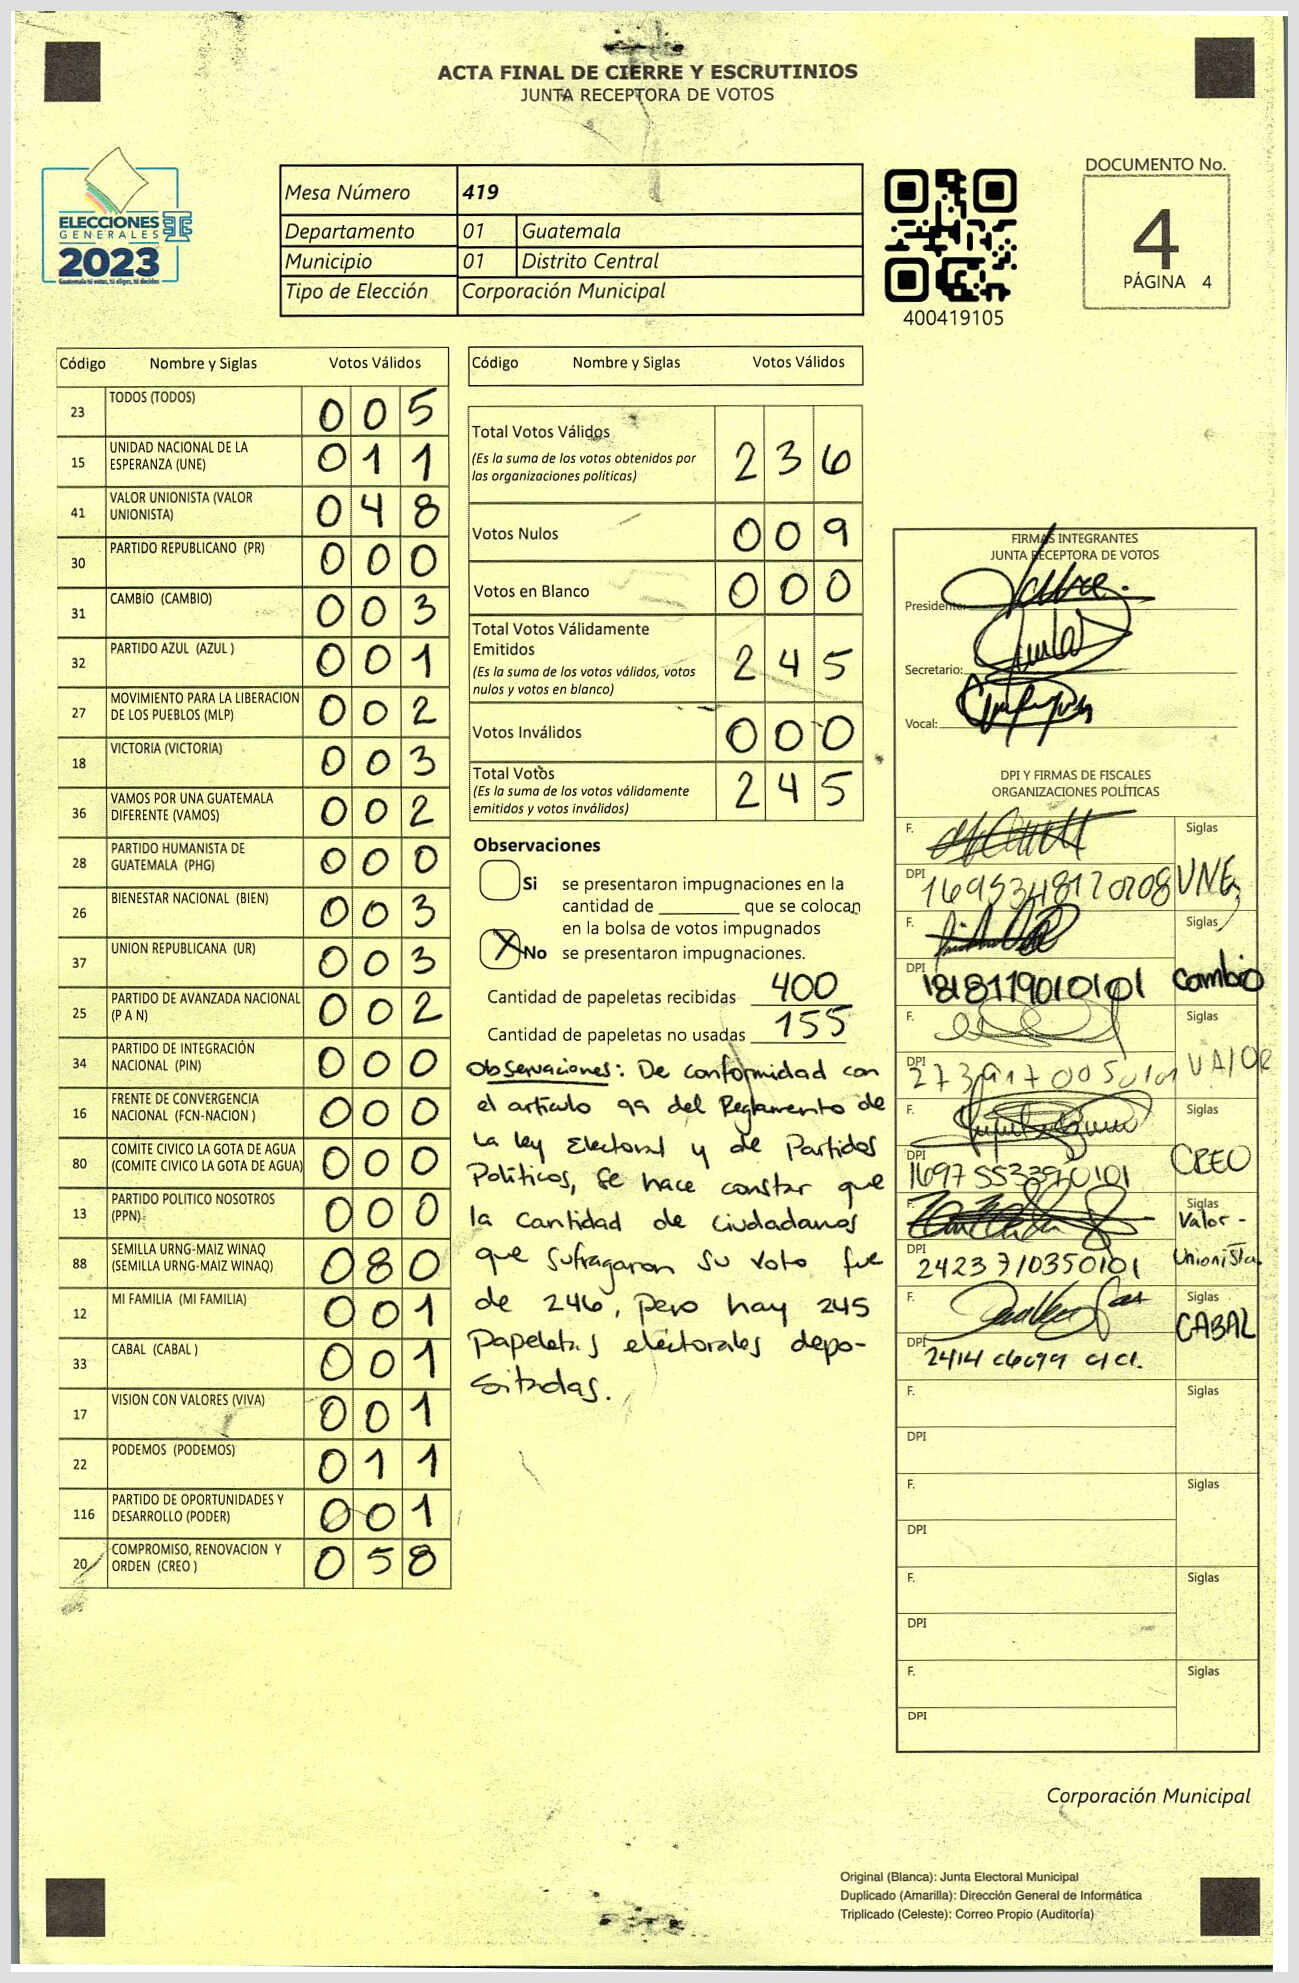 ACTA FINAL DE CIERRE Y ESCRUTINIOS
JUNTA RECEPTORA DE VOTOS
ELECCIONES
GENERALES
2023
Guatemala tú votas, tú eliges, tú decides
Mesa Número 419
Departamento 01 Guatemala
Municipio 01 Distrito Central
Tipo de Elección Corporación Municipal
400419105
DOCUMENTO No.
4
PÁGINA 4
Código Nombre y Siglas Votos Válidos
23 TODOS (TODOS) 0 0 5
15 UNIDAD NACIONAL DE LA ESPERANZA (UNE) 0 1 1
41 VALOR UNIONISTA (VALOR UNIONISTA) 0 4 8
30 PARTIDO REPUBLICANO (PR) 0 0 0
31 CAMBIO (CAMBIO) 0 0 3
32 PARTIDO AZUL (AZUL ) 0 0 1
27 MOVIMIENTO PARA LA LIBERACION DE LOS PUEBLOS (MLP) 0 0 2
18 VICTORIA (VICTORIA) 0 0 3
36 VAMOS POR UNA GUATEMALA DIFERENTE (VAMOS) 0 0 2
28 PARTIDO HUMANISTA DE GUATEMALA (PHG) 0 0 0
26 BIENESTAR NACIONAL (BIEN) 0 0 3
37 UNION REPUBLICANA (UR) 0 0 3
25 PARTIDO DE AVANZADA NACIONAL (P A N) 0 0 2
34 PARTIDO DE INTEGRACIÓN NACIONAL (PIN) 0 0 0
16 FRENTE DE CONVERGENCIA NACIONAL (FCN-NACION ) 0 0 0
80 COMITE CIVICO LA GOTA DE AGUA (COMITE CIVICO LA GOTA DE AGUA) 0 0 0
13 PARTIDO POLITICO NOSOTROS (PPN) 0 0 0
88 SEMILLA URNG-MAIZ WINAQ (SEMILLA URNG-MAIZ WINAQ) 0 8 0
12 MI FAMILIA (MI FAMILIA) 0 0 1
33 CABAL (CABAL ) 0 0 1
17 VISION CON VALORES (VIVA) 0 0 1
22 PODEMOS (PODEMOS) 0 1 1
116 PARTIDO DE OPORTUNIDADES Y DESARROLLO (PODER) 0 0 1
20 COMPROMISO, RENOVACION Y ORDEN (CREO ) 0 5 8
Código Nombre y Siglas Votos Válidos
Total Votos Válidos 2 3 6
(Es la suma de los votos obtenidos por
las organizaciones políticas)
Votos Nulos 0 0 9
Votos en Blanco 0 0 0
Total Votos Válidamente
Emitidos 2 4 5
(Es la suma de los votos válidos, votos
nulos y votos en blanco)
Votos Inválidos 0 0 0
Total Votos 2 4 5
(Es la suma de los votos válidamente
emitidos y votos inválidos)
Observaciones
Si se presentaron impugnaciones en la
cantidad de ________ que se colocan
en la bolsa de votos impugnados
X No se presentaron impugnaciones.
Cantidad de papeletas recibidas 400
Cantidad de papeletas no usadas 155
Observaciones: De conformidad con
el artículo 99 del Reglamento de
la ley Electoral y de Partidos
Políticos, se hace constar que
la cantidad de ciudadanos
que sufragaron su voto fue
de 246, pero hay 245
Papeletas electorales depo-
sitadas.
FIRMAS INTEGRANTES
JUNTA RECEPTORA DE VOTOS
Presidente:
Secretario:
Vocal:
DPI Y FIRMAS DE FISCALES
ORGANIZACIONES POLÍTICAS
F. Siglas
DPI UNE
F. Siglas
DPI 1818119010101 Cambio
F. Siglas
DPI VALOR
F. Siglas
DPI CREO
F. Siglas
Valor -
DPI 2423 710350101 Unionista
F. Siglas
CABAL
DPI
F. Siglas
DPI
F. Siglas
DPI
F. Siglas
DPI
F. Siglas
DPI
Corporación Municipal
Original (Blanca): Junta Electoral Municipal
Duplicado (Amarilla): Dirección General de Informática
Triplicado (Celeste): Correo Propio (Auditoría)